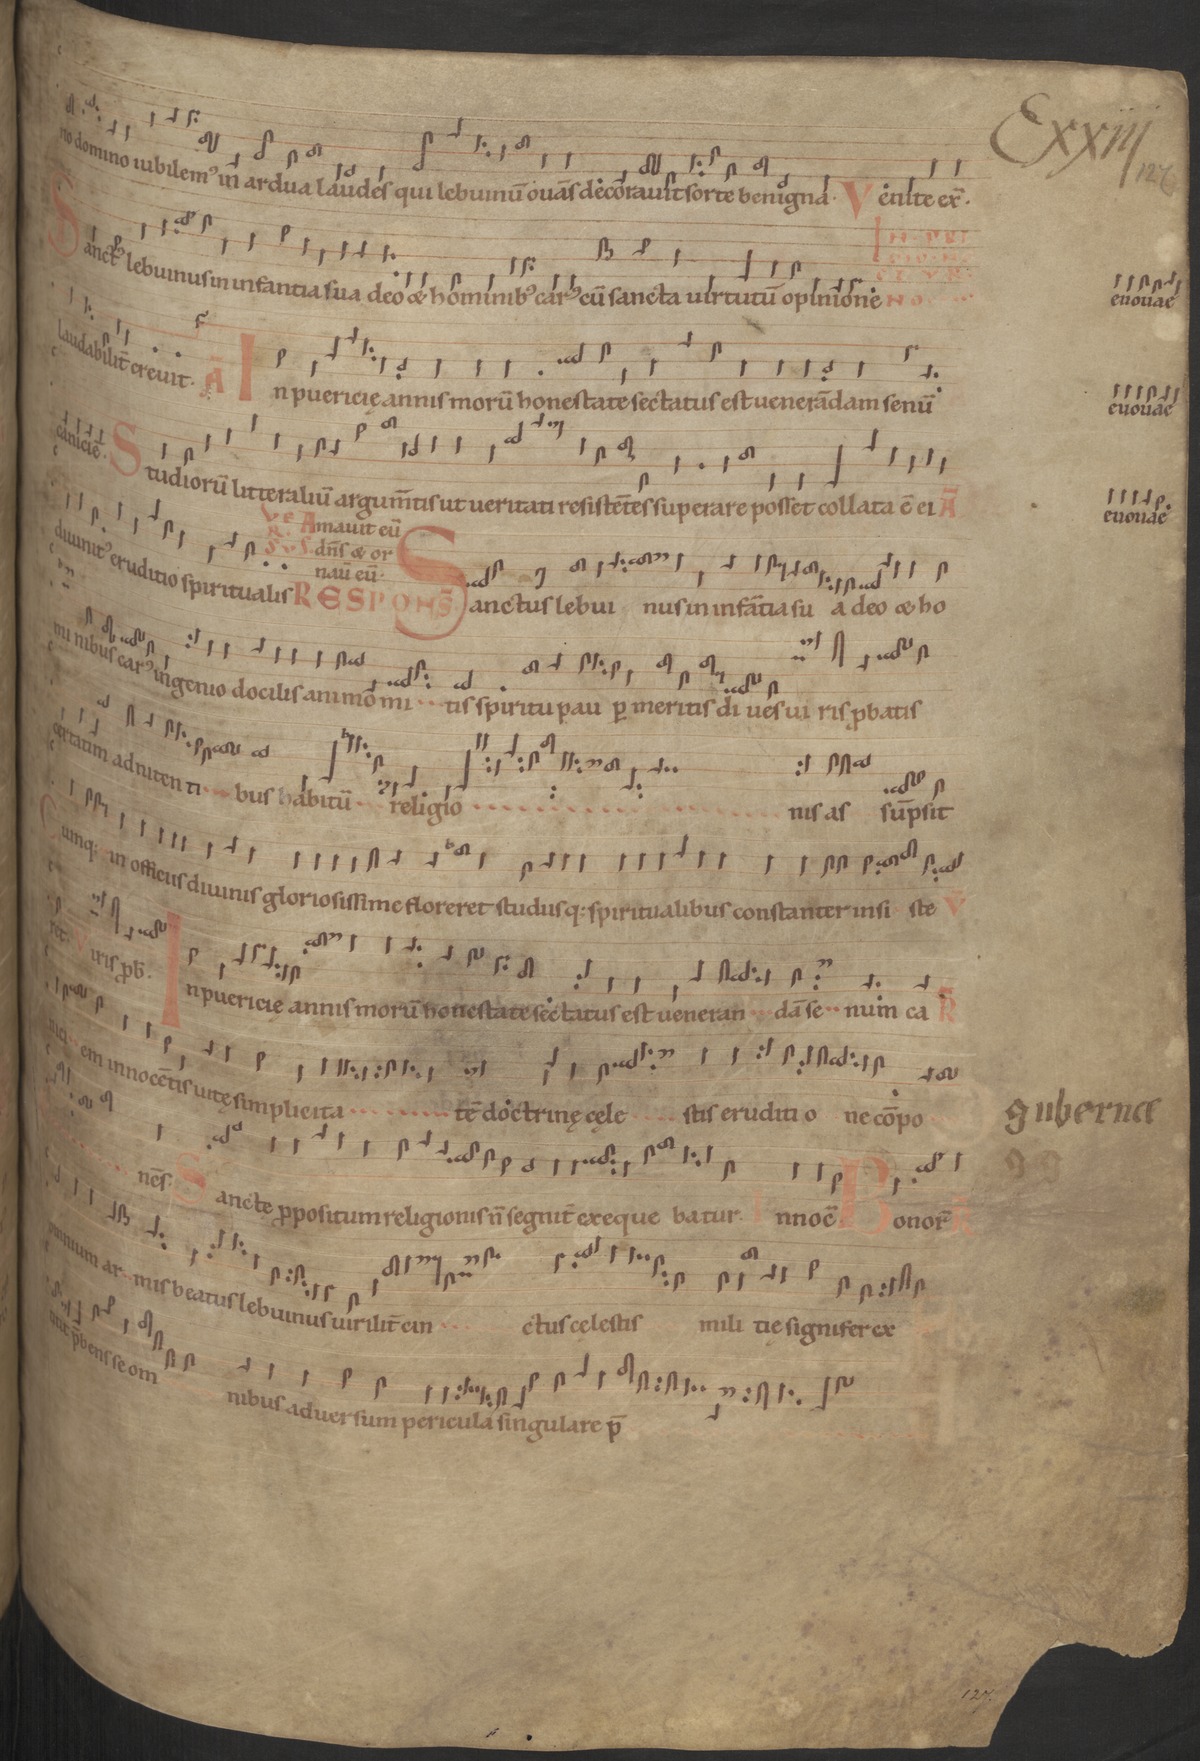 Cxxiij
127
no domino iubilemꝰ in ardua laudes qui lebuinū ouās decorauit sorte benigna. Venite ex̄.
Sanctꝰ lebuinus in infantia sua deo & hominibꝰ carꝰ cū sancta uirtutū opinione
euouae
laudabilit̄ creuit. A̅ In puericię annis morū honestate sectatus est uenerādam senū
euouae
caniciē. Studiorū litteraliū argum̄tis ut ueritati resistētes superare posset collata ē ei A̅
euouae
diuinitꝰ eruditio spiritualis
Amauit eū
dn̄s & or
nau̅ eū.
RESPONS̄. Sanctus lebui nus in infātia su a deo & ho
mi nibus carꝰ ingenio docilis animo mi tis spiritu pau ꝑ meritis di ues ui ris ꝓbatis
certatim adniten ti bus habitū religio nis as sūpsit
Cumq; in officiis diuinis gloriosissime floreret studiisq; spiritualibus constanter insi ste V
ret. Viris ꝓb̄. In puericie annis morū honestate sectatus est ueneran dā se num ca R
nici em innocētis uitę simplicita tē doctrinę cęle stis eruditi o ne cōpo
nēs. Sancte ꝓpositum religionis n̄ segnit̄ exeque batur. Innocē Bonor̄
gubernce
omnium ar mis beatus lebuinus uirilit̄ cin ctus cęlestis mili tię signifer ex
titit p̄bens se om nibus aduersum pericula singulare p̄
127.